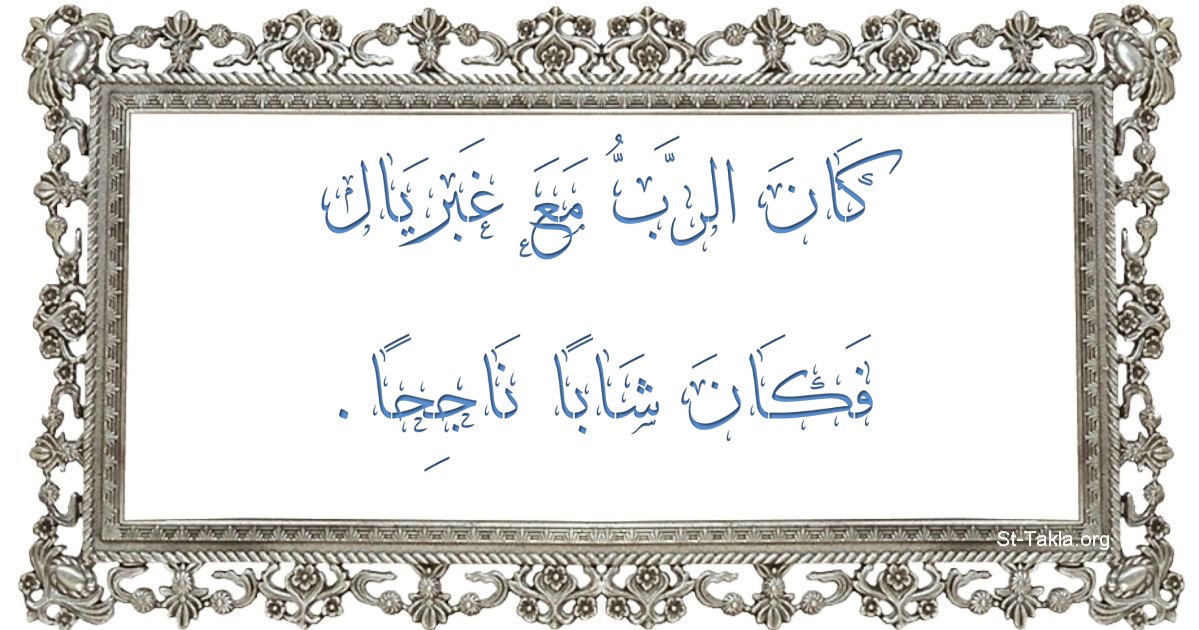 كَانَ الرَّبُّ مَعَ غَبَرْيَال
فَكَانَ شَابًا نَاجِحًا .
St-Takla.org